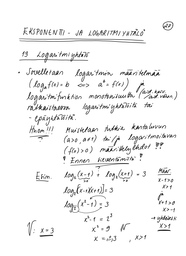 EKSPONENTTI- JA LOGARITMIYHTÄLÖ
13 Logaritmiyhtälö
- Sovelletaan logaritmin määritelmää
(logₐf(x)=b ⟺ aᵇ = f(x)) ja
logaritmifunktion monotonisuutta
ratkaistaessa logaritmiyhtälöitä tai
-epäyhtälöitä.
Huom!!! Muistetaan tutkia kantaluvun
(a>0, a≠1) ja logaritmoitavan
(f(x)>0) määrittelyehdot !!
? Ennen sieventämistä ?
Esim. log₂(x-1) + log₂(x+1) = 3
log₂(x-1)(x+1) = 3
log₂(x²-1) = 3
x²-1 = 2³
x² = 9
x = ±3, x>1
V: x=3
Määr.
x-1>0
x>1
x+1>0
x>-1
x>1